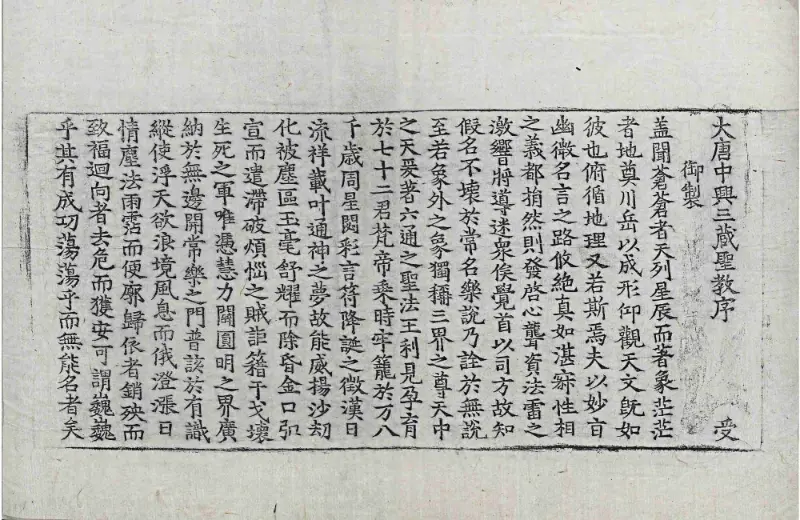 大唐中興三藏聖教序 受
御製
盖聞蒼蒼者天列星辰而著象茫茫
者地奠川岳以成形仰觀天文旣如
彼也俯循地理又若斯焉夫以妙旨
幽微名言之路攸絶真如湛寂性相
之義都捐然則發啓心聾資法雷之
激響將導迷衆俟覺首以司方故知
假名不壞於常名樂說乃詮於無說
至若象外之象獨稱三界之尊天中
之天爰著六通之聖法王利見孕育
於七十二君梵帝乘時牢籠於万八
千歲周星閟彩言符降誕之徵漢日
流祥載叶通神之夢故能威揚沙刧
化被塵區玉毫舒耀而除昏金口弘
宣而遣滯破煩惱之賊詎籍干戈壞
生死之軍唯憑慧力闢圓明之界廣
納於無邊開常樂之門普該於有識
縱使浮天欲浪境風息而俄澄漲日
情塵法雨霑而便廓歸依者銷殃而
致福迴向者去危而獲安可謂巍巍
乎其有成功蕩蕩乎而無能名者矣